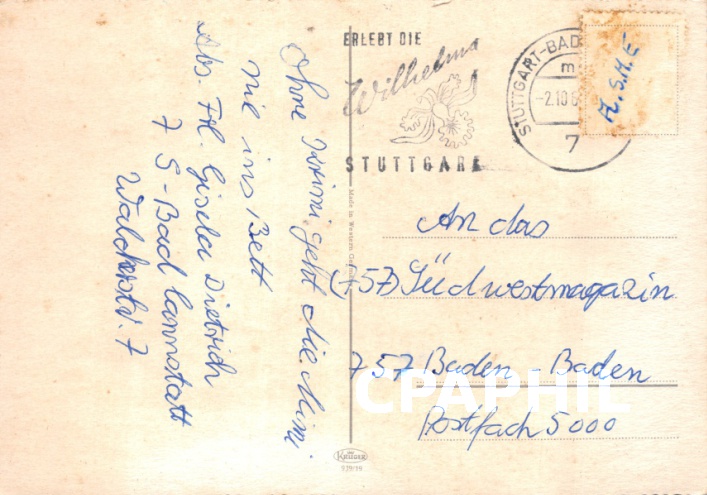 Ohne Krimi geht die Mimi
nie ins Bett
Abs. Frl. Gisela Dietrich
7 S-Bad Cannstatt
Walckerstr. 7
ERLEBT DIE
Wilhelma
STUTTGART
STUTTGART-BAD
m
-2.10.6
7
A.S.M.E
Made in Western Germany
An das
(757) Südwestmagazin
757 Baden-Baden
Postfach 5000
KRÜGER
CPAPHIL